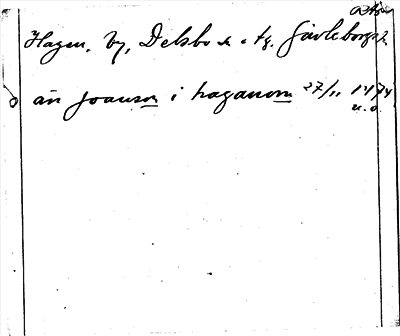 Hagen, by, Delsbo sn o tg. Gävleborgs l.
än joanson i haganom 27/11 1474
u.o.